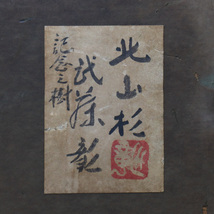 北山杉
武藤彰
記念之樹